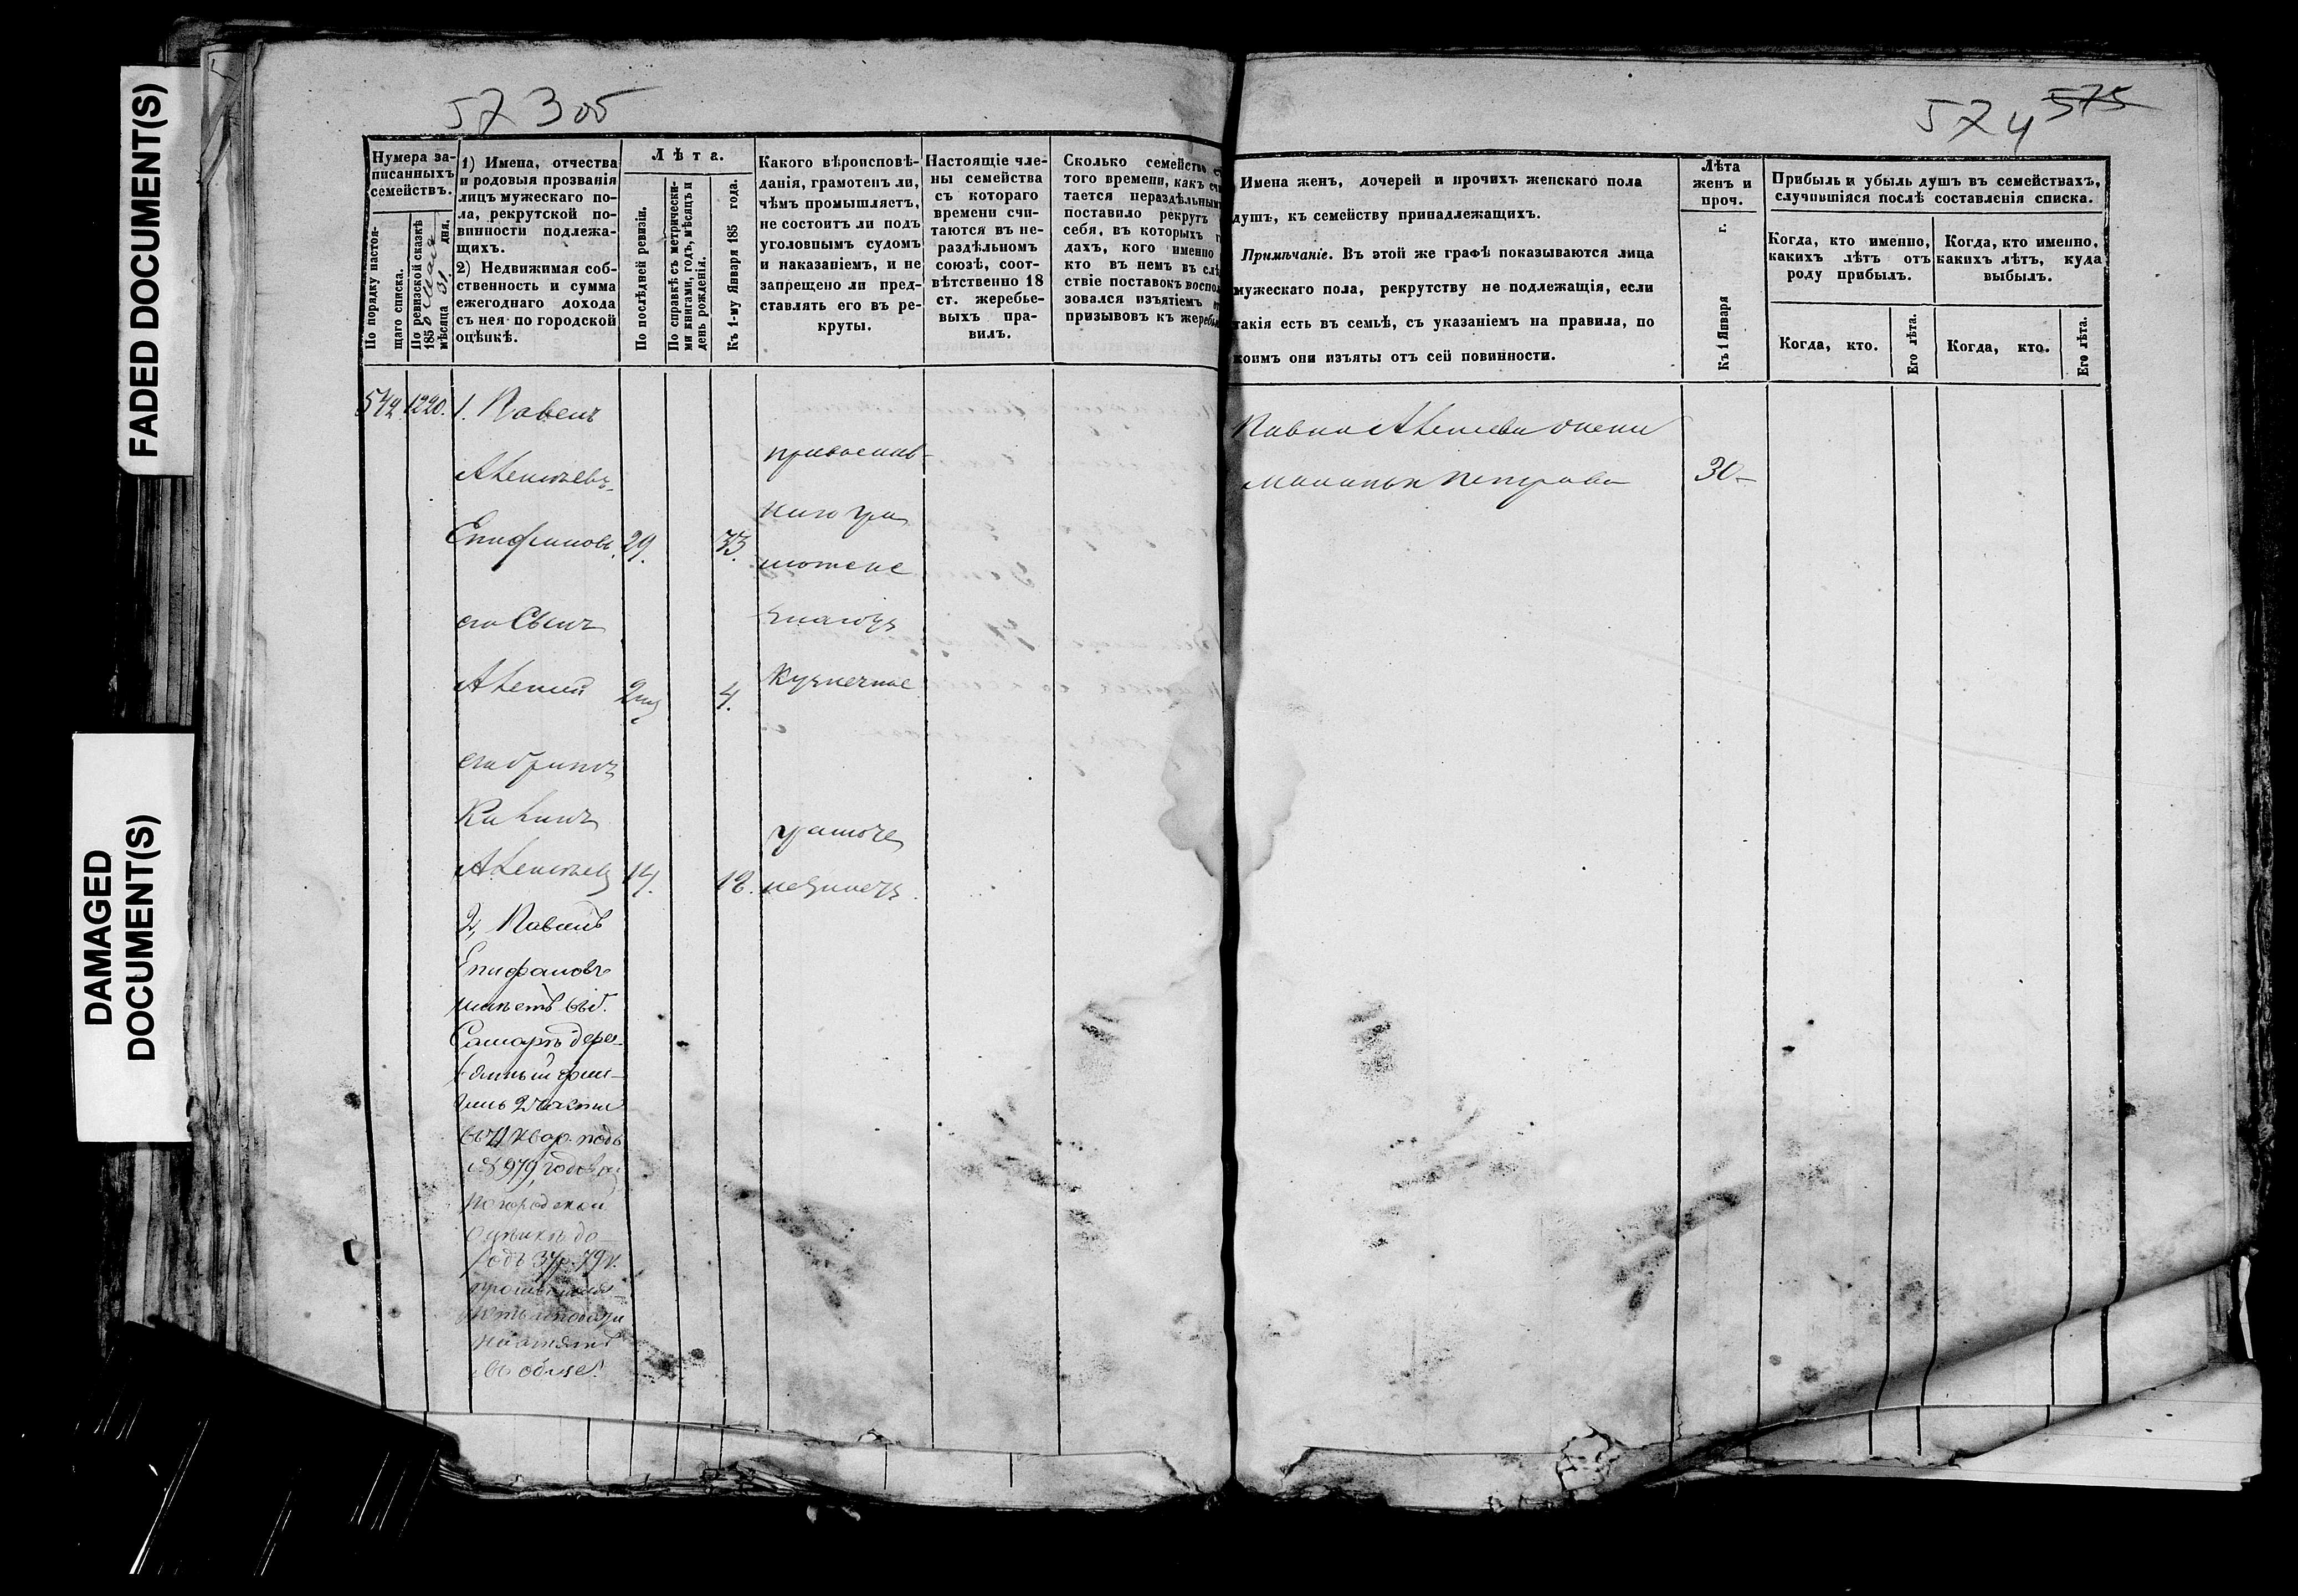 FADED DOCUMENT(S)
DAMAGED
DOCUMENT(S)
57305
574 575
Нумера за-
писанныхъ
семействъ.
По порядку настоя-
щаго списка.
По ревизской сказкѣ
185 Мая
мѣсяца 31 дня.
1) Имена, отчества
и родовыя прозванія
лицъ мужескаго по-
ла, рекрутской по-
винности подлежа-
щихъ.
2) Недвижимая соб-
ственность и сумма
ежегоднаго дохода
съ нея по городской
оцѣнкѣ.
Лѣта.
По послѣдней ревизіи.
По справкѣ съ метрически-
ми книгами, годъ, мѣсяцъ и
день рожденія.
Къ 1-му Января 185 года.
Какого вѣроисповѣ-
данія, грамотенъ ли,
чѣмъ промышляетъ,
не состоитъ ли подъ
уголовнымъ судомъ
и наказаніемъ, и не
запрещено ли пред-
ставлять его въ ре-
круты.
Настоящіе чле-
ны семейства
съ котораго
времени счи-
таются въ не-
раздѣльномъ
союзѣ, соот-
вѣтственно 18
ст. жеребье-
выхъ пра-
вилъ.
Сколько семейство
того времени, какъ
тается нераздѣльнымъ
поставило рекрутъ
себя, въ которыхъ
дахъ, кого именно
кто въ немъ въ
ствіе поставокъ
зовался изъятіемъ
призывовъ къ
Имена женъ, дочерей и прочихъ женскаго пола
душъ, къ семейству принадлежащихъ.
Примѣчаніе. Въ этой же графѣ показываются лица
мужескаго пола, рекрутству не подлежащія, если
такія есть въ семьѣ, съ указаніемъ на правила, по
коимъ они изъяты отъ сей повинности.
Лѣта
женъ и
проч.
Къ 1 Января г.
Прибыль и убыль душъ въ семействахъ,
случившіяся послѣ составленія списка.
Когда, кто именно,
какихъ лѣтъ отъ
роду прибылъ.
Когда, кто именно,
какихъ лѣтъ, куда
выбылъ.
Когда, кто.
Его лѣта.
Когда, кто.
Его лѣта.
542 1220. 1. Павелъ
Алексѣевъ
Епифановъ. 29. 33.
его Сынъ
Алексѣй 4.
его братъ
Алексѣевъ 14. 18.
православ-
кузнечное
Павла Алексѣева жена
Маланья Петрова 30
2, Павелъ
Епифановъ
имѣетъ въ г.
Самарѣ дере-
вянный
2 части
въ квар. подъ
№ 979, годовой
по городской
оцѣнкѣ до-
ходъ 34 р. 79 к.